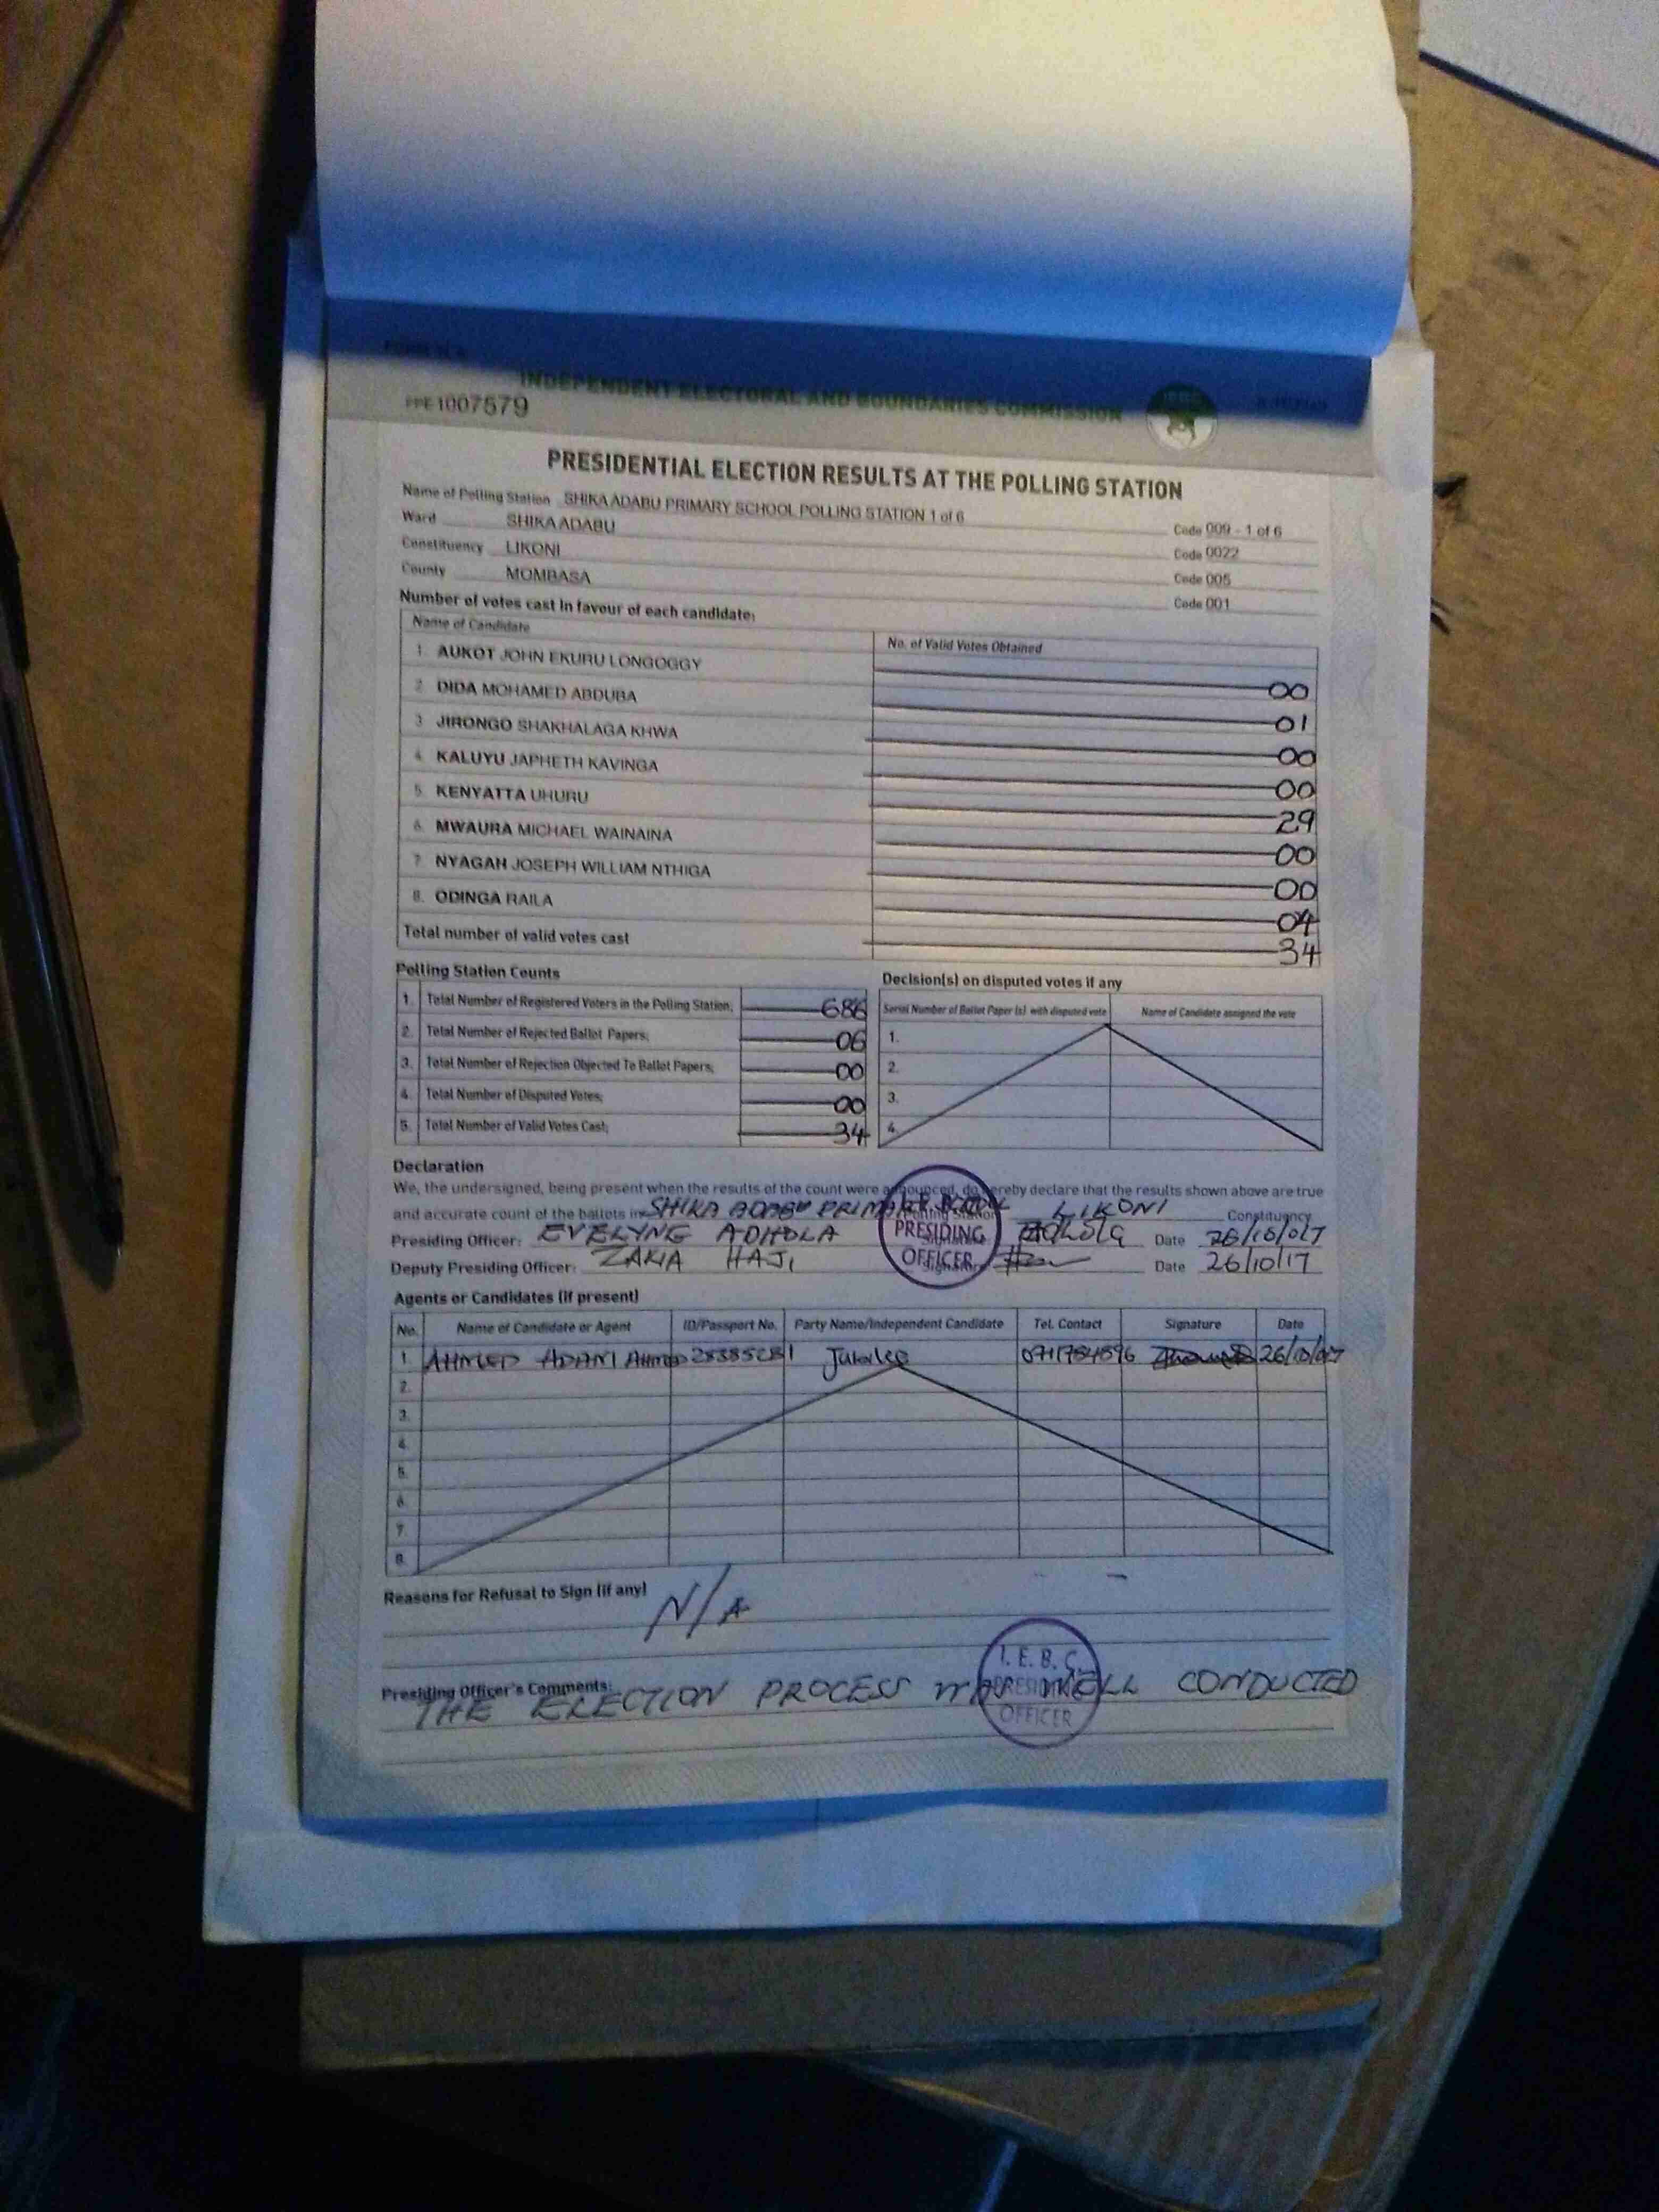 INDEPENDENT ELECTORAL AND BOUNDARIES COMMISSION
PPE 1007579
PRESIDENTIAL ELECTION RESULTS AT THE POLLING STATION
Name of Polling Station SHIKA ADABU PRIMARY SCHOOL POLLING STATION 1 of 6 Code 009 - 1 of 6
Ward SHIKA ADABU Code 0022
Constituency LIKONI Code 005
County MOMBASA Code 001
Number of votes cast in favour of each candidate:
Name of Candidate No. of Valid Votes Obtained
1. AUKOT JOHN EKURU LONGOGGY 00
2. DIDA MOHAMED ABDUBA 01
3. JIRONGO SHAKHALAGA KHWA 00
4. KALUYU JAPHETH KAVINGA 00
5. KENYATTA UHURU 29
6. MWAURA MICHAEL WAINAINA 00
7. NYAGAH JOSEPH WILLIAM NTHIGA 00
8. ODINGA RAILA 04
Total number of valid votes cast 34
Polling Station Counts
1. Total Number of Registered Voters in the Polling Station; 686
2. Total Number of Rejected Ballot Papers; 06
3. Total Number of Rejection Objected To Ballot Papers; 00
4. Total Number of Disputed Votes; 00
5. Total Number of Valid Votes Cast; 34
Decision(s) on disputed votes if any
Serial Number of Ballot Paper (s) with disputed vote Name of Candidate assigned the vote
1.
2.
3.
4.
Declaration
We, the undersigned, being present when the results of the count were announced, do hereby declare that the results shown above are true
and accurate count of the ballots in SHIKA ADABU PRIMARY SCHOOL Polling Station LIKONI Constituency
Presiding Officer: EVELYNE ADHOLA Adhola Date 26/10/017
Deputy Presiding Officer: ZAKIA HAJI Signature Date 26/10/17
PRESIDING
OFFICER
Agents or Candidates (if present)
No. Name of Candidate or Agent ID/Passport No. Party Name/Independent Candidate Tel. Contact Signature Date
1. AHMED ADAN Ahmed Jubilee 26/10/017
2.
3.
4.
5.
6.
7.
8.
Reasons for Refusal to Sign (if any)
N/A
Presiding Officer's Comments:
THE ELECTION PROCESS WAS WELL CONDUCTED
I. E. B. C.
PRESIDING
OFFICER